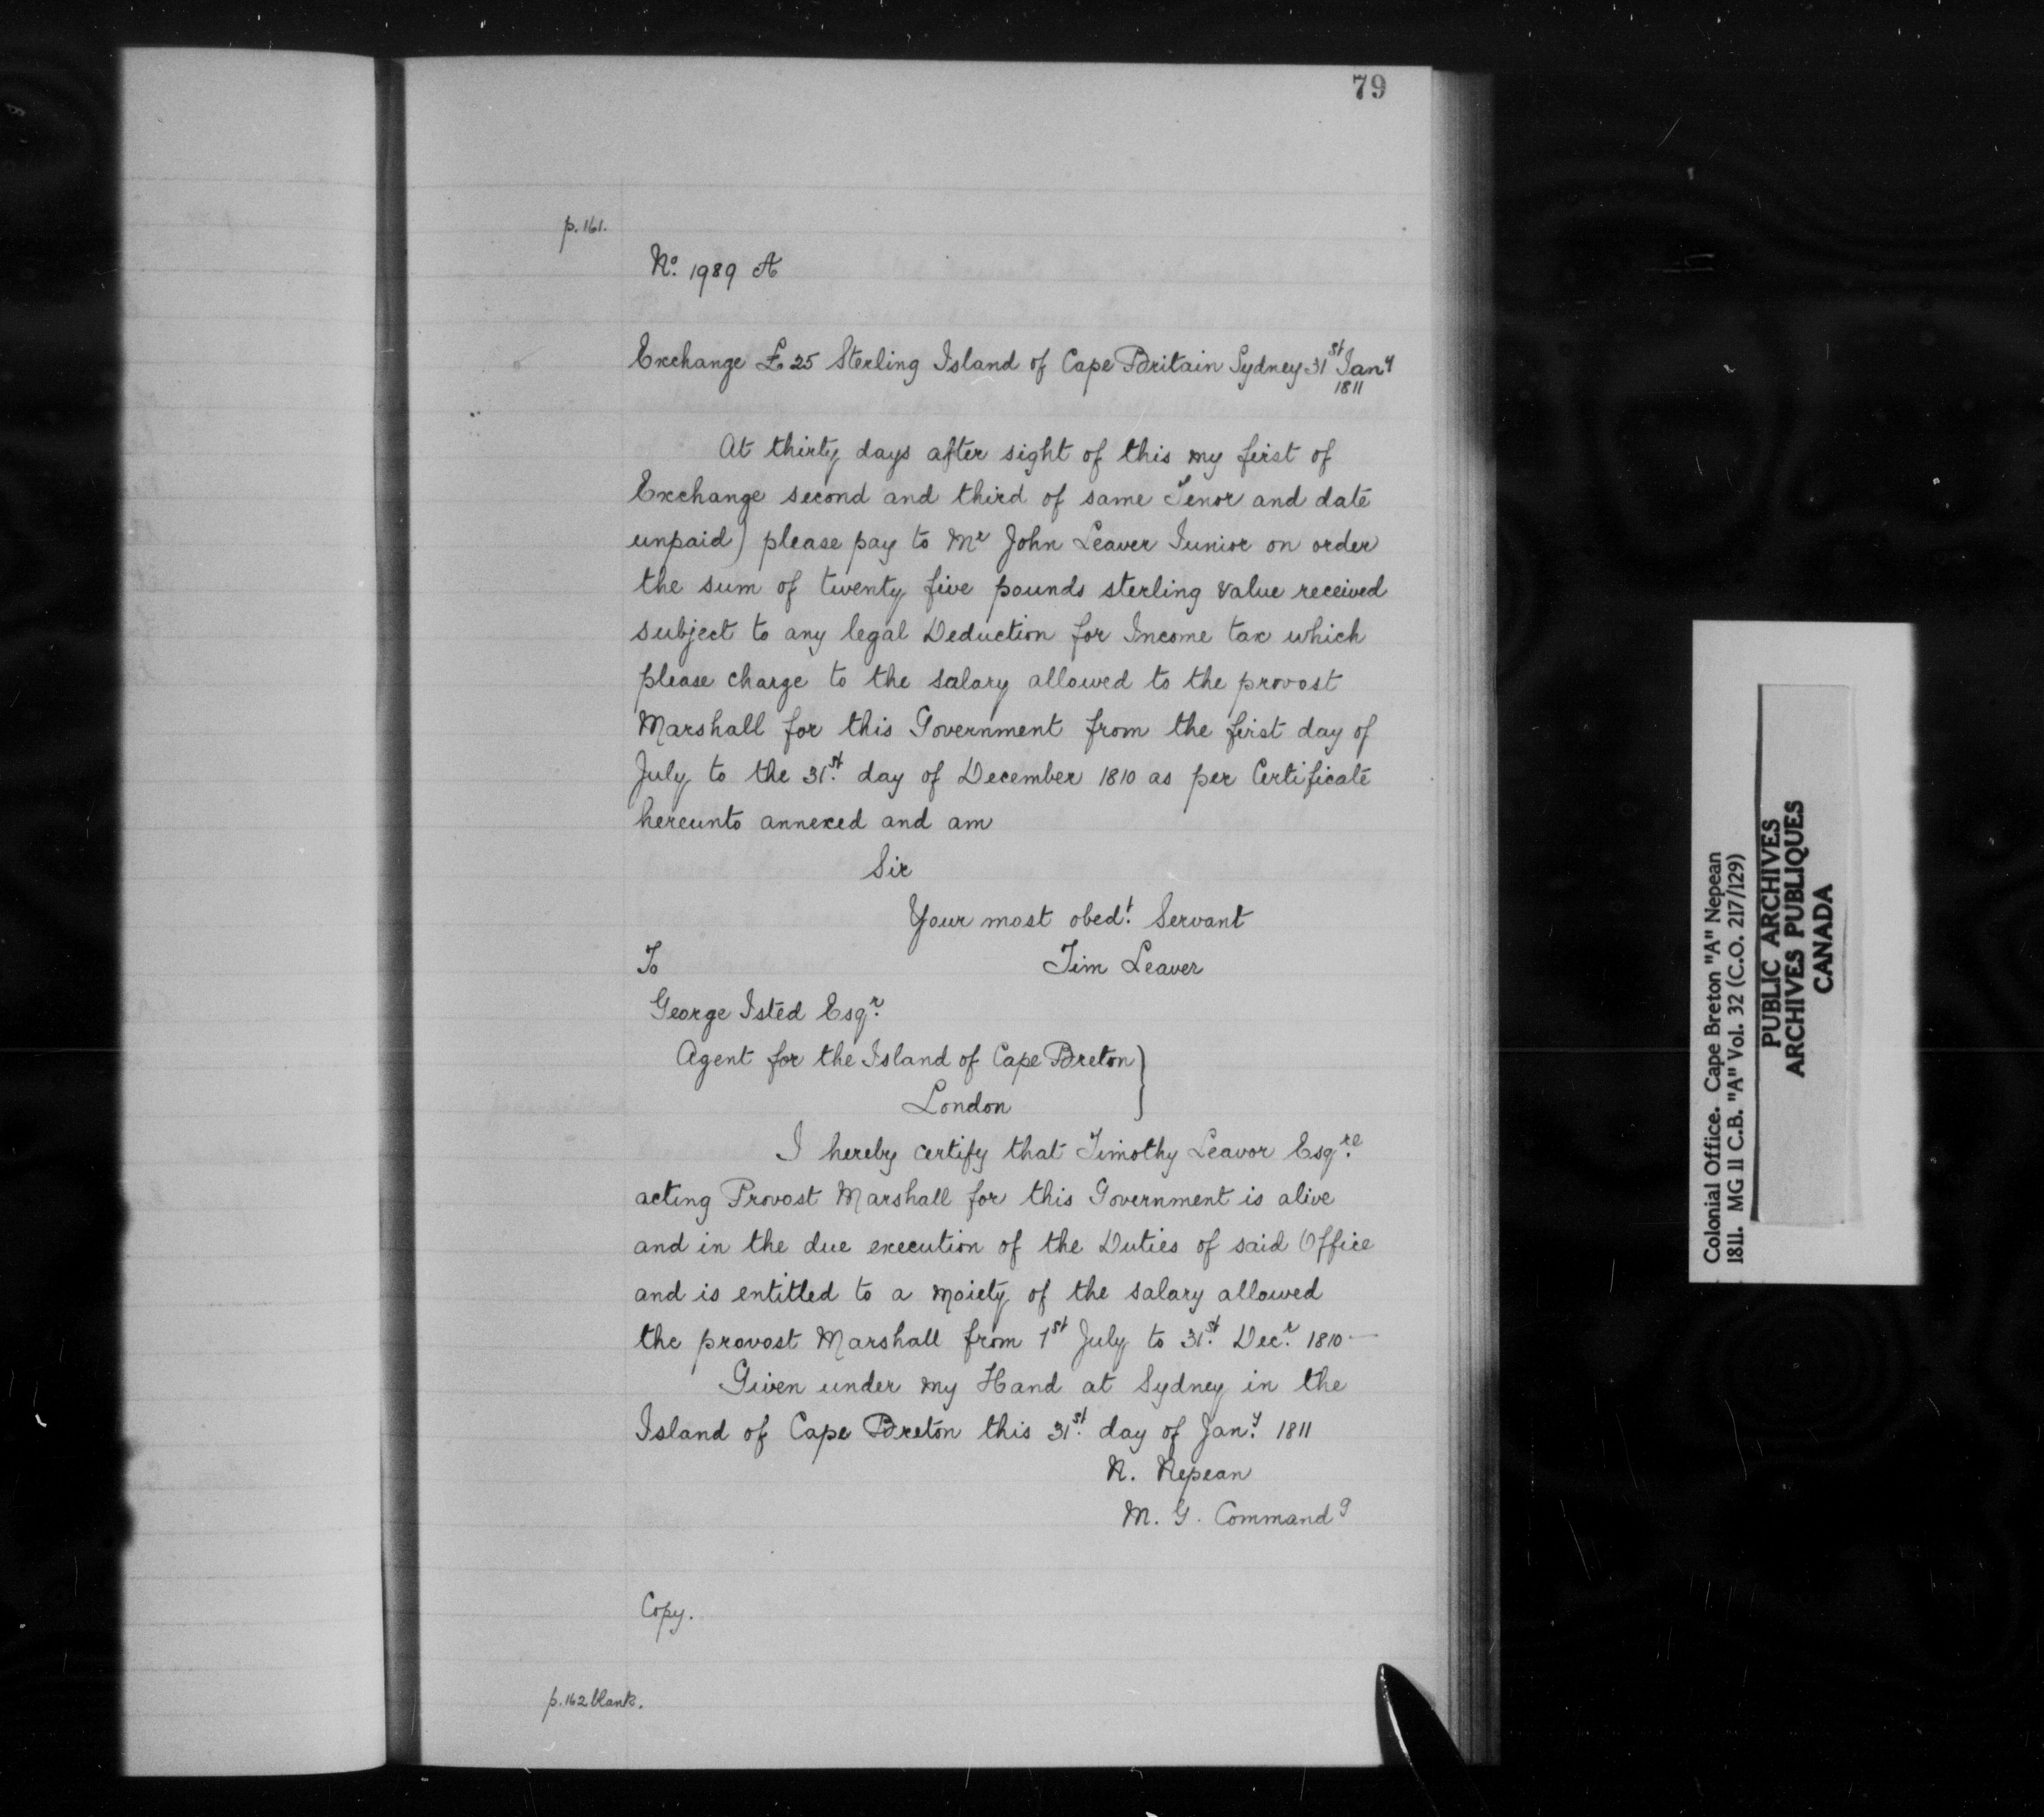 79
p. 161.
No. 1989 A
Exchange £25 Sterling Island of Cape Britain Sydney 31st Jany
1811
At thirty days after sight of this my first of
Exchange second and third of same Tenor and date
unpaid) please pay to Mr John Leaver Junior on order
the sum of twenty five pounds sterling value received
subject to any legal Deduction for Income tax which
please charge to the salary allowed to the provost
Marshall for this Government from the first day of
July to the 31st. day of December 1810 as per Certificate
hereunto annexed and am
Sir
Your most obedt. Servant
To Tim Leaver
George Isted Esqr.
Agent for the Island of Cape Breton }
London
I hereby certify that Timothy Leavor Esqre.
acting Provost Marshall for this Government is alive
and in the due execution of the Duties of said Office
and is entitled to a moiety of the salary allowed
the provost Marshall from 1st July to 31st. Decr. 1810—
Given under my Hand at Sydney in the
Island of Cape Breton this 31st. day of Jany. 1811
N. Nepean
M. G. Commandg
Copy.
p. 162 blank.
Colonial Office. Cape Breton "A" Nepean
1811. MG 11 C.B. "A" Vol. 32 (C.O. 217/129)
PUBLIC ARCHIVES
ARCHIVES PUBLIQUES
CANADA